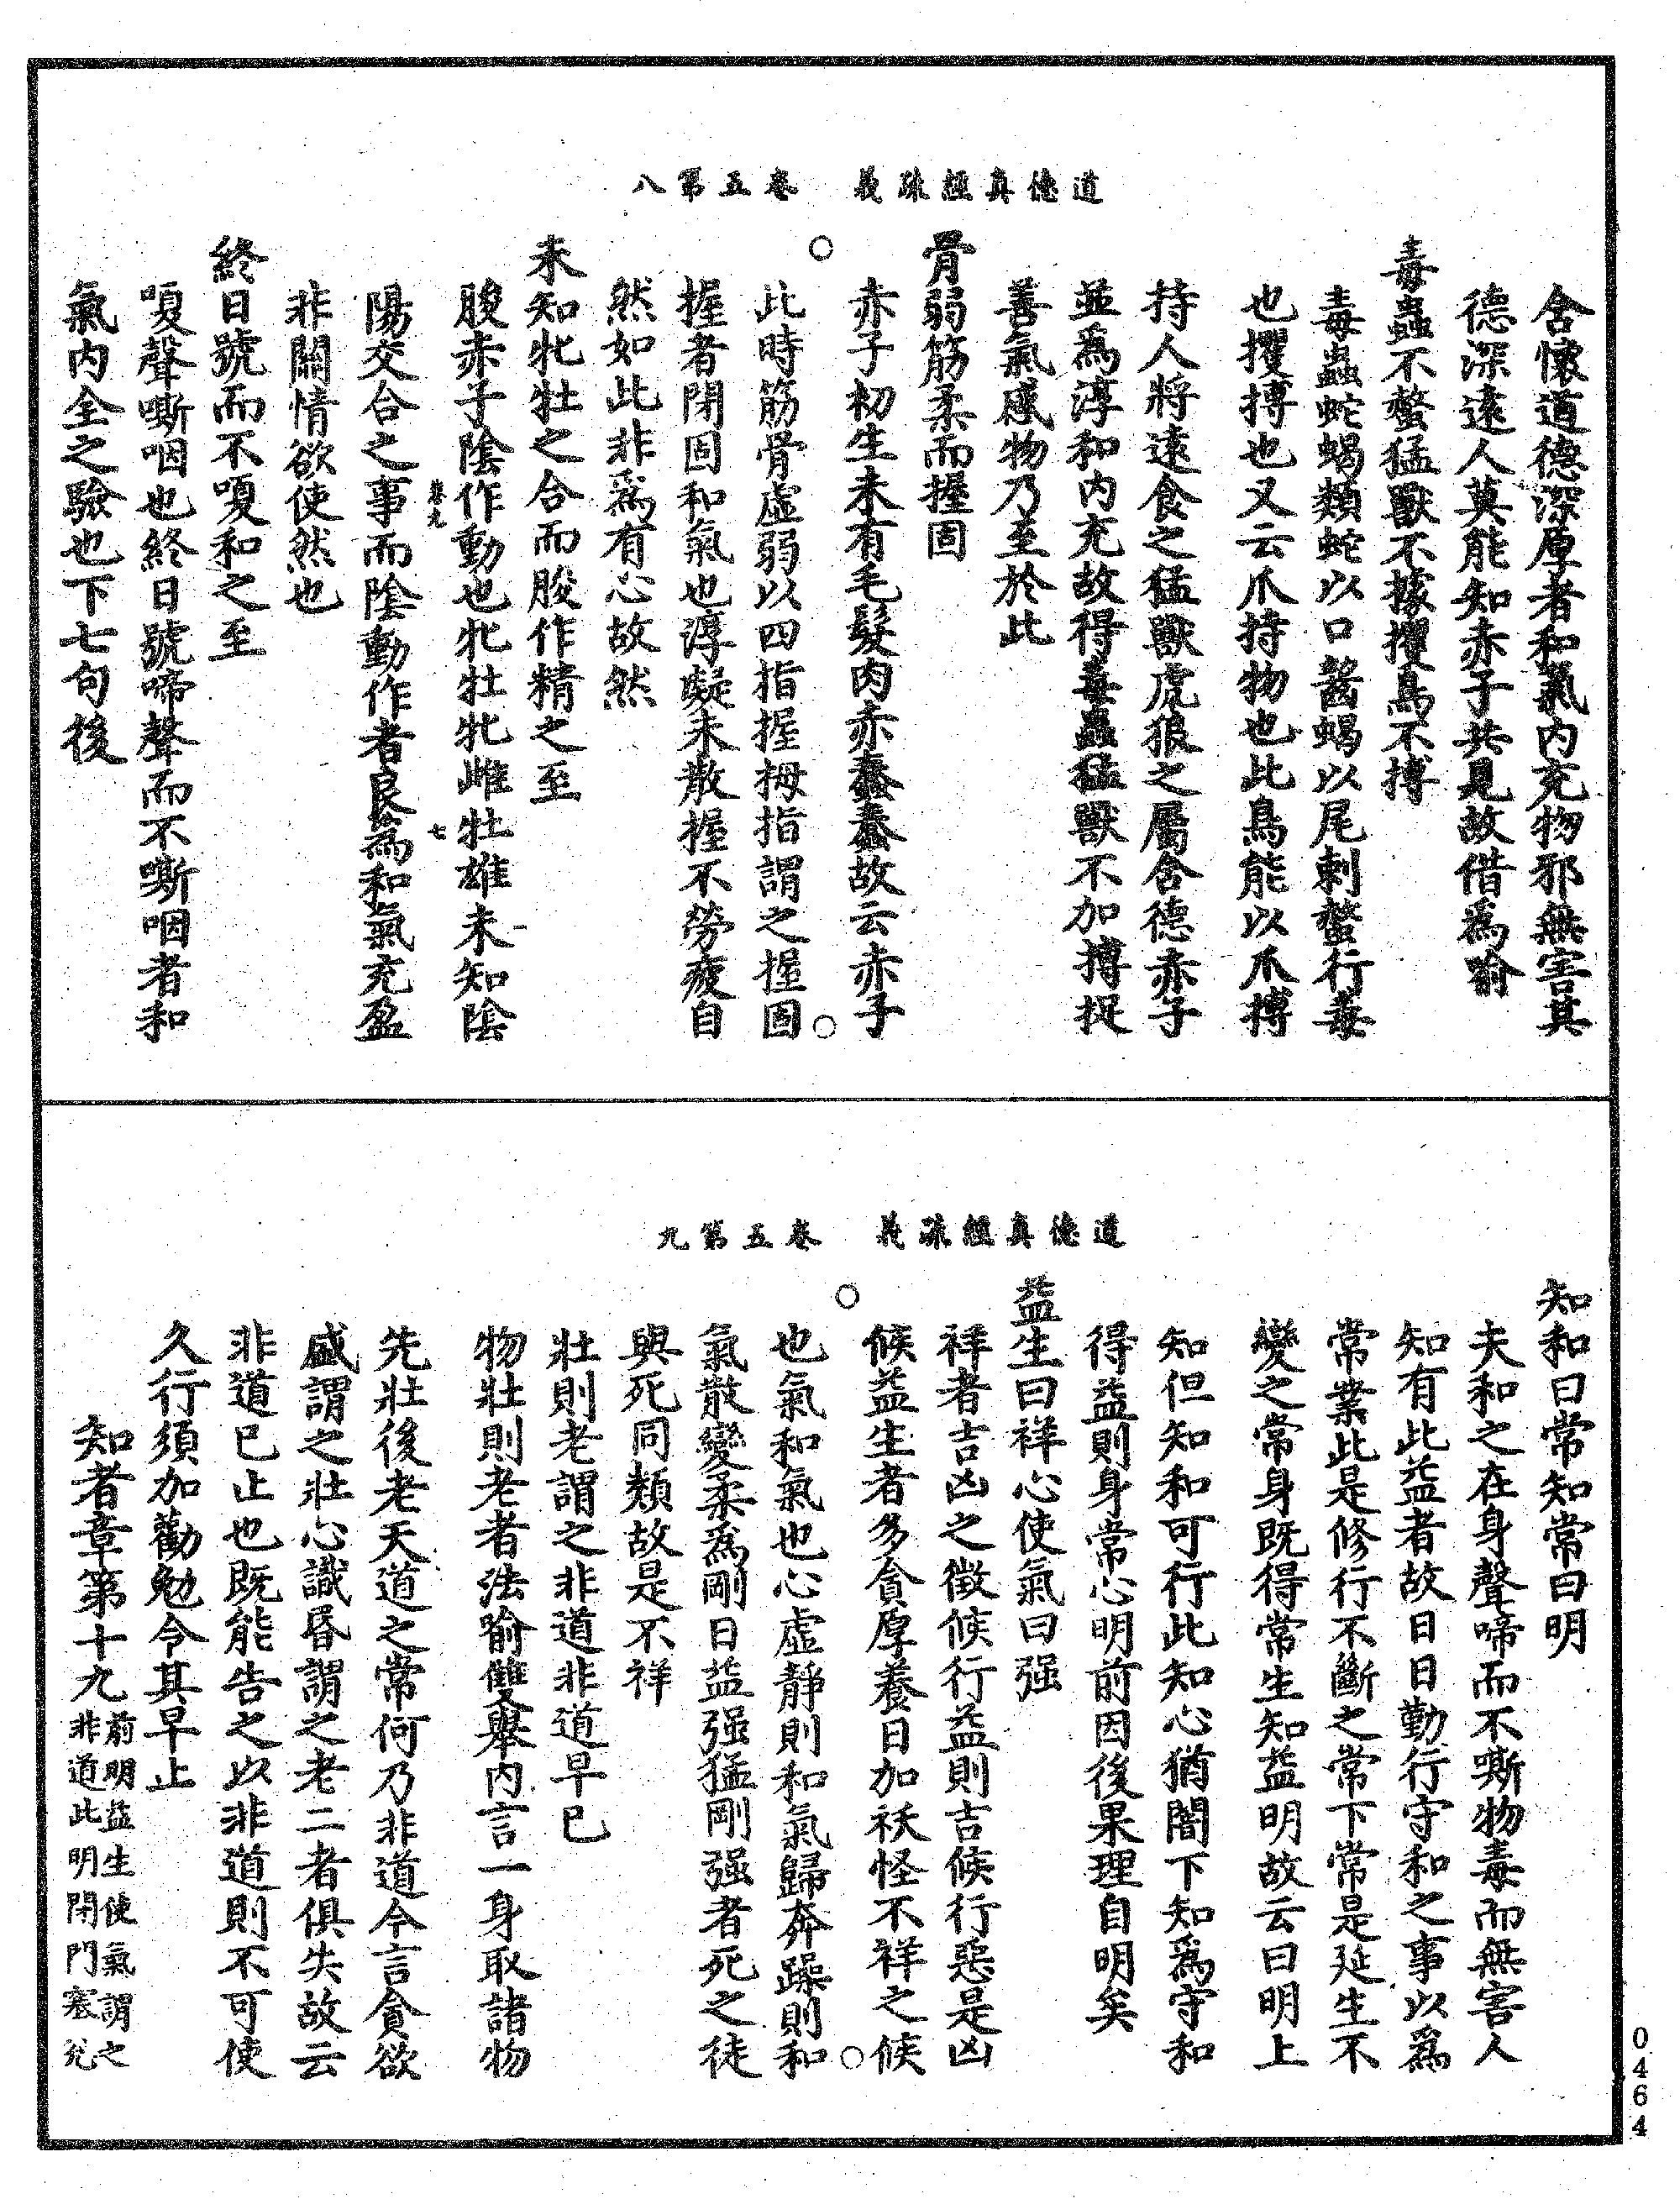 道德真經疏義　卷五第八
含懷道德深厚者和氣內充物邪無害其
德深遠人莫能知赤子共見故借爲喻
毒蟲不螫猛獸不據攫鳥不搏
毒蟲蛇蝎類蛇以口齧蝎以尾刺螫行毒
也攫搏也又云爪持物也此鳥能以爪搏
持人將遠食之猛獸虎狼之屬含德赤子
並爲淳和內充故得毒蟲猛獸不加搏捉
善氣感物乃至於此
骨弱筋柔而握固
赤子初生未有毛髮肉赤蠢蠢故云赤子
此時筋骨虛弱以四指握拇指謂之握固
握者閉固和氣也淳凝未散握不勞疲自
然如此非爲有心故然
未知牝牡之合而朘作精之至
朘赤子陰作動也牝牡牝雌牡雄未知陰
陽交合之事而陰動作者良爲和氣充盈
非關情欲使然也
終日號而不嗄和之至
嗄聲嘶咽也終日號啼聲而不嘶咽者和
氣內全之驗也下七句後
道德真經疏義　卷五第九
知和曰常知常曰明
夫和之在身聲啼而不嘶物毒而無害人
知有此益者故日日勤行守和之事以爲
常業此是修行不斷之常下常是延生不
變之常身既得常生知益明故云曰明上
知但知和可行此知心猶闇下知爲守和
得益則身常心明前因後果理自明矣
益生曰祥心使氣曰强
祥者吉凶之徵候行益則吉候行惡是凶
候益生者多貪厚養日加祅怪不祥之候
也氣和氣也心虛靜則和氣歸奔躁則和
氣散變柔爲剛日益强猛剛强者死之徒
與死同類故是不祥
壯則老謂之非道非道早已
物壯則老者法喻雙舉內言一身取諸物
先壯後老天道之常何乃非道今言貪欲
盛謂之壯心識昏謂之老二者俱失故云
非道已止也既能告之以非道則不可使
久行須加勸勉令其早止
知者章第十九前明益生使氣謂之
非道此明閉門塞兌
0464